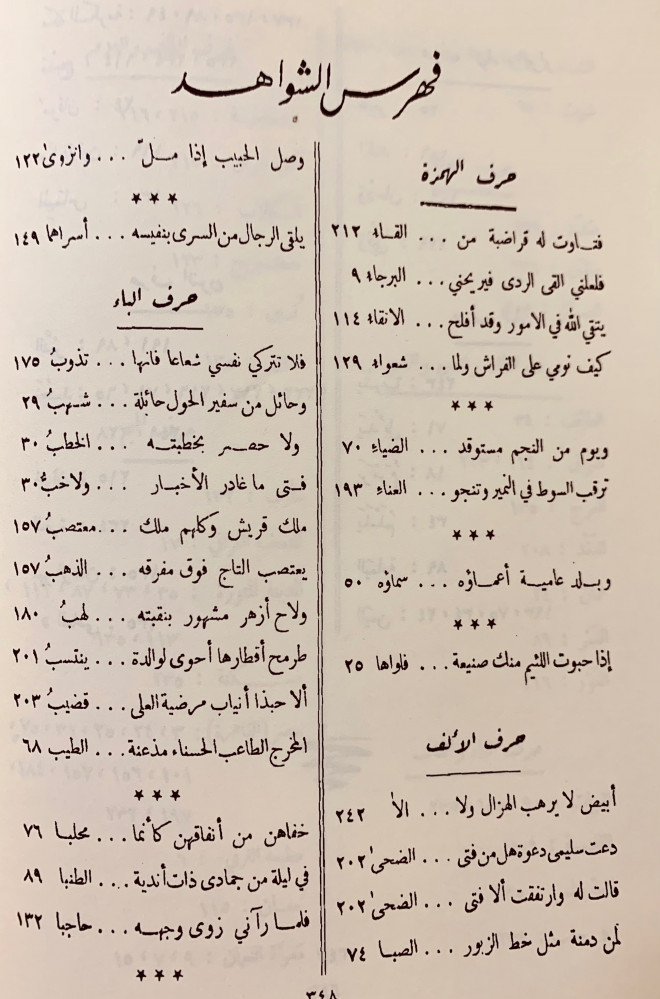 فهرس الشواهد
حرف الهمزة
فتأوت له قراضبة من ... القاء ٢١٢
فلعلني القى الردى فيريحني ... البرجاء ٩
يتقي الله في الامور وقد أفلح ... الاتقاء ١١٤
كيف نومي على الفراش ولما ... شعواء ١٢٩
***
ويوم من النجم مستوقد ... الضياء ٧٠
ترقب السوط في الغير وتنجو ... العناء ١٩٣
***
وبلد عامية أعماؤه ... سماؤه ٥٠
***
إذا حبوت اللئيم منك صنيعة ... فلواها ٢٥
حرف الألف
أبيض لا يرهب الهزال ولا ... الا ٢٤٢
دعت سليمى دعوة هل من فتى ... الضحى ٢٠٢
قالت له وارتفقت ألا فتى ... الضحى ٢٠٢
لمن دمنة مثل خط الزبور ... الصبا ٧٤
وصل الحبيب إذا ملّ ... وانزوى ١٢٢
***
يلقى الرجال من السرى بنفيسه ... أسراها ١٤٩
حرف الباء
فلا تتركي نفسي شعاعا فانها ... تذوبُ ١٧٥
وحائل من سفير الحول حائلة ... شهبُ ٢٩
ولا حصر بخطبته ... الخطبُ ٣٠
فتى ما غادر الأخبار ... ولاخبُّ ٣٠
ملك قريش وكلهم ملك ... معتصبُ ١٥٧
يعتصب التاج فوق مفرقه ... الذهبُ ١٥٧
ولاح أزهر مشهور بنقبته ... لهبُ ١٨٠
طرمح أقطارها أحوى لوالدة ... ينتسبُ ٢٠١
ألا حبذا أنياب مرضية العلى ... قضيبُ ٢٠٣
المخرج الطاعب الحسناء مذعنة ... الطيب ٦٨
***
خفاهن من أنفاقهن كأنما ... محلبا ٧٦
في ليلة من جمادى ذات أندية ... الطنبا ٨٩
فلما رآني زوى وجهه ... حاجبا ١٣٢
***
٣٤٨